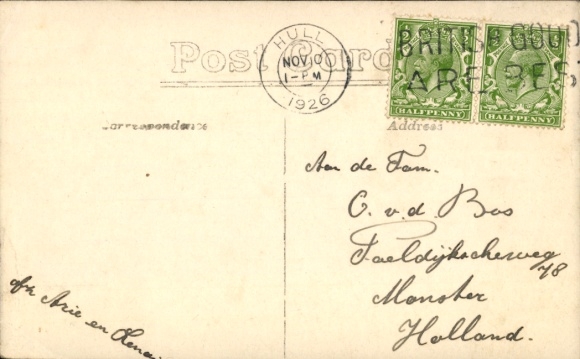 Post Card
HULL
NOV 10
1-PM
1926
BRITISH GOODS
ARE BEST
HALFPENNY
HALFPENNY
Correspondence
Address
Aan de Fam.
C. v. d. Bos
Poeldijkscheweg
78
Monster
Holland.
Arie en